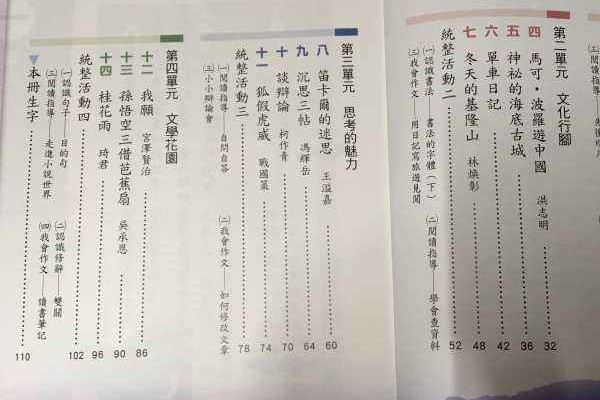 第二單元 文化行腳
四 馬可·波羅遊中國 洪志明 32
五 神祕的海底古城 36
六 單車日記 42
七 冬天的基隆山 林煥彰 48
統整活動二 52
㈠認識書法——書法的字體（下） ㈡閱讀指導——學會查資料
㈢我會作文——用日記寫旅遊見聞
第三單元 思考的魅力
八 笛卡爾的迷思 王溢嘉 60
九 沉思三帖 馮輝岳 64
十 談辯論 柯作青 70
十一 狐假虎威 戰國策 74
統整活動三 78
㈠閱讀指導——自問自答 ㈡我會作文——如何修改文章
㈢小小辯論會
第四單元 文學花園
十二 我願 宮澤賢治 86
十三 孫悟空三借芭蕉扇 吳承恩 90
十四 桂花雨 琦君 96
統整活動四 102
㈠認識句子——目的句 ㈡認識修辭——雙關
㈢閱讀指導——走進小說世界 ㈣我會作文——讀書筆記
▼本冊生字 110